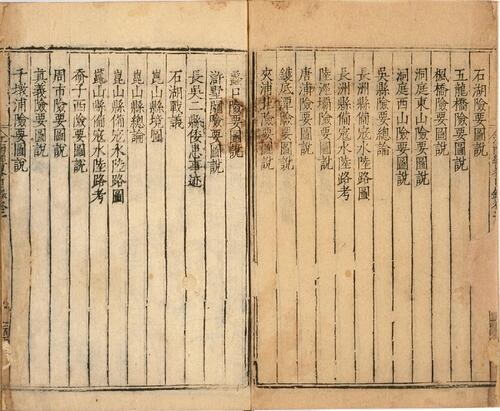 石湖險要圖說
五龍橋險要圖說
楓橋險要圖說
洞庭東山險要圖說
洞庭西山險要圖說
吳縣險要總論
長洲縣備寇水陸路圖
長洲縣備寇水陸路考
陸涇壩險要圖說
唐浦險要圖說
鑊底潭險要圖說
夾浦北險要圖說
蠡口險要圖說
滸墅關險要圖說
長吳二縣倭患事迹
石湖戰議
崑山縣境圖
崑山縣總論
崑山縣備寇水陸路圖
崑山縣備寇水陸路考
夼子西險要圖說
周市險要圖說
真義險要圖說
千墩浦險要圖說